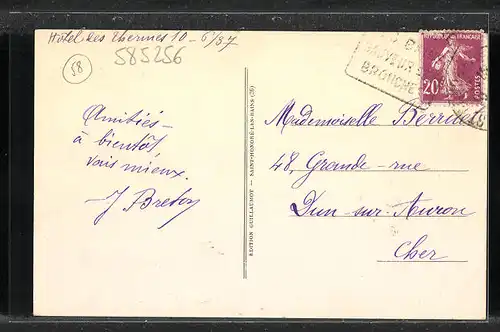 Hotel des Thermes 10-6/37
585256
58
Amitiés -
à bientôt,
vais mieux.
J Breton
EDITION GUILLAUMOT - SAINT-HONORÉ-LES-BAINS (N)
SAUVEUR
BRONCHE
REPUBLIQUE FRANÇAISE
20
POSTES
Mademoiselle
48, Grande-rue
Dun-sur-Auron
Cher